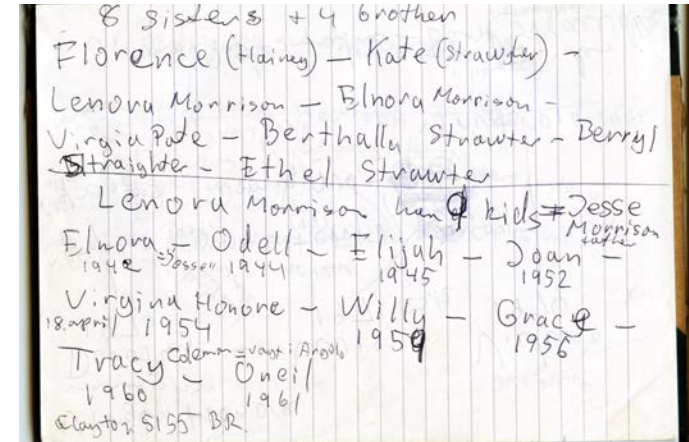 8 sisters + 4 brother
Florence (Hainey) – Kate (Strawgter) –
Lenora Morrison – Elnora Morrison –
Virgia Pate – Berthally Strawter – Berryl
Straighter – Ethel Strawter
Lenora Morrison han 9 kids = Jesse
Morrison
father
Elnora – Odell – Elijah – Joan –
1942 = Jesse 1944 1945 1952
Virginia Honore – Willy – Grace –
18. april 1954 1959 1956
Tracy Coleman = vant i Angola
– Oneil
1960 1961
Clayton 5155 BR